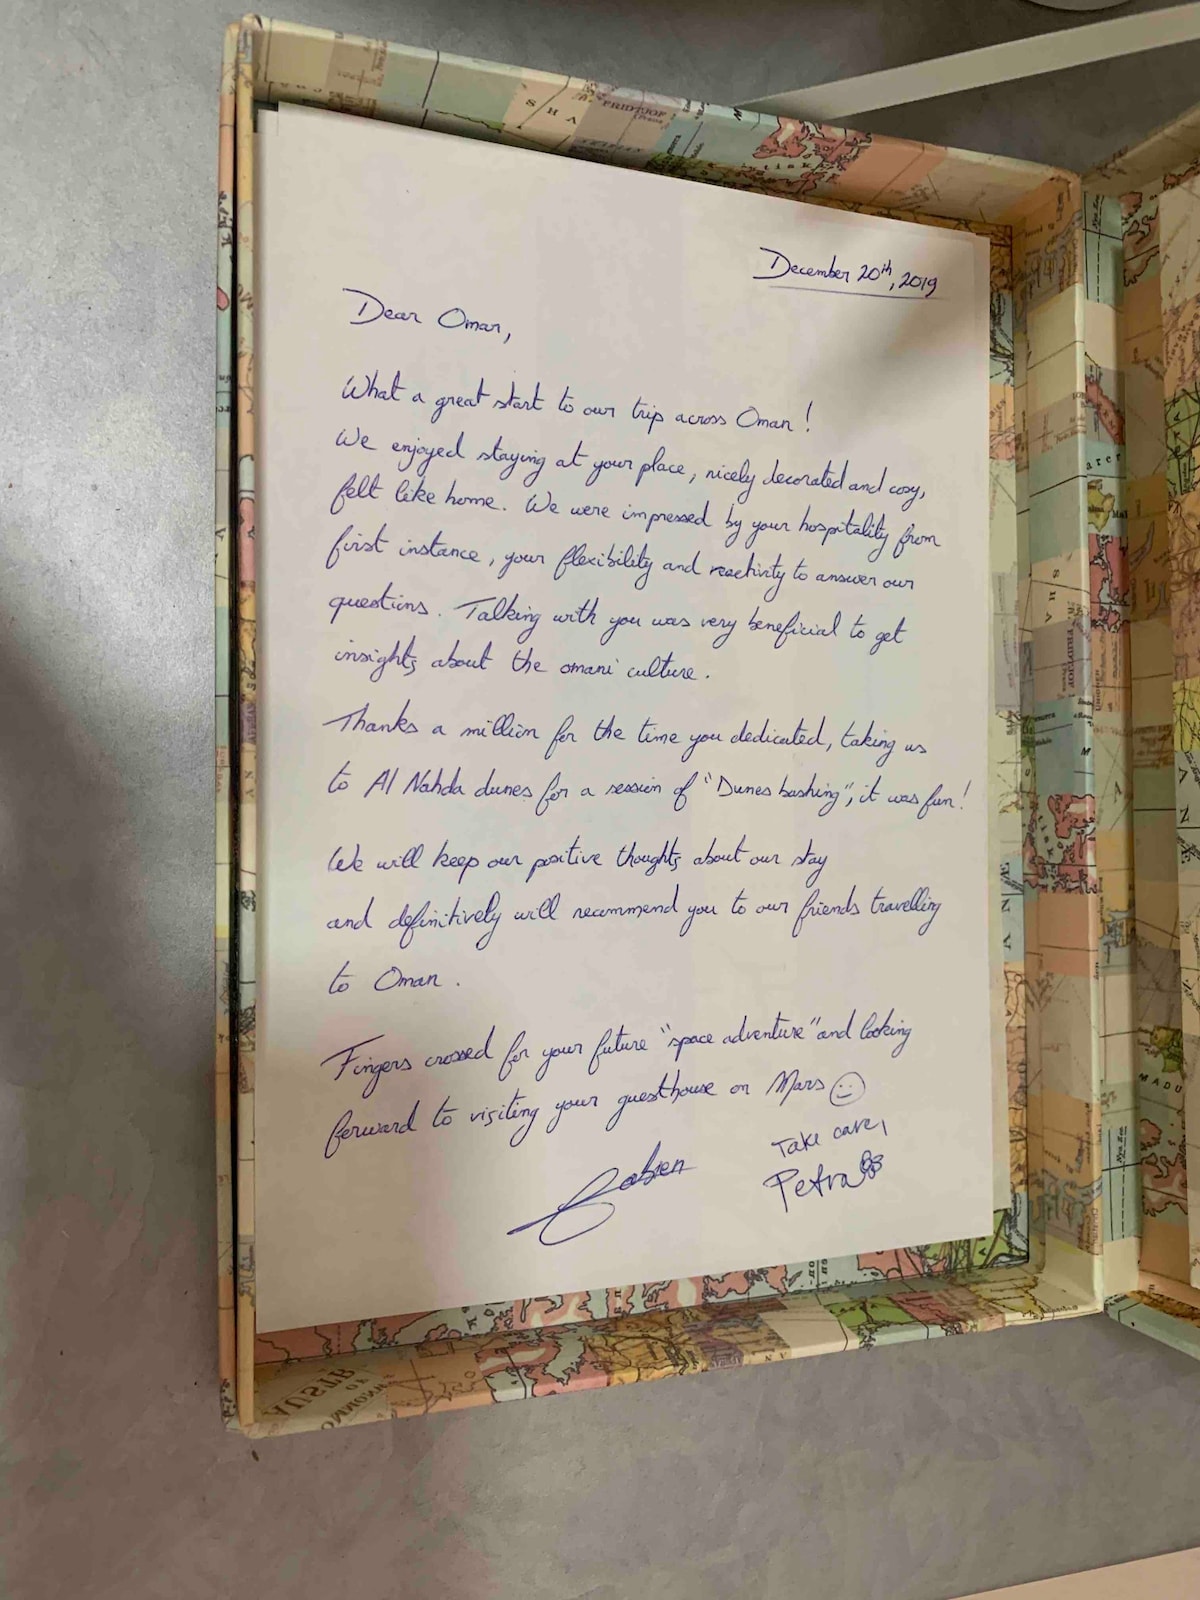 December 20th, 2019
Dear Omar,
What a great start to our trip across Oman!
We enjoyed staying at your place, nicely decorated and cosy,
felt like home. We were impressed by your hospitality from
first instance, your flexibility and reactivity to answer our
questions. Talking with you was very beneficial to get
insights about the omani culture.
Thanks a million for the time you dedicated, taking us
to Al Nahda dunes for a session of "Dunes bashing", it was fun!
We will keep our positive thoughts about our stay
and definitively will recommend you to our friends travelling
to Oman.
Fingers crossed for your future "space adventure" and looking
forward to visiting your guesthouse on Mars
Take care,
Petra
SHA
FRIDTJOF
MADU